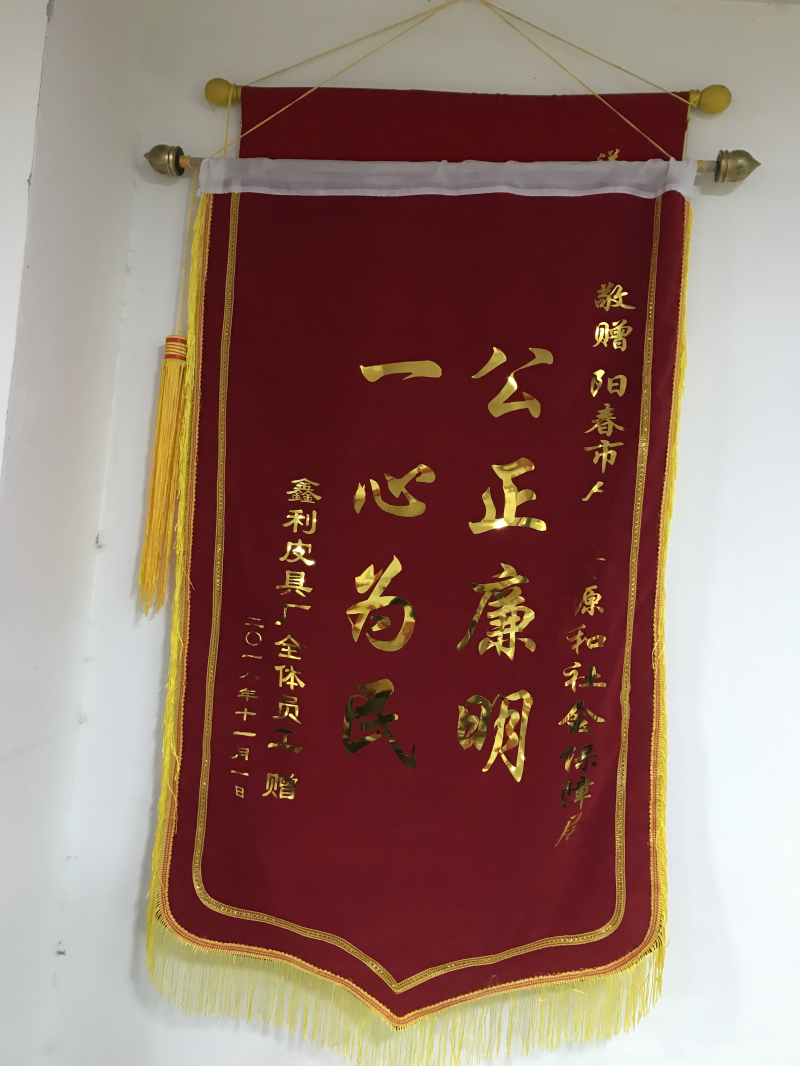 敬赠 阳春市人 资源和社会保障局
公正廉明
一心为民
鑫利皮具厂全体员工 赠
二〇一八年十一月一日